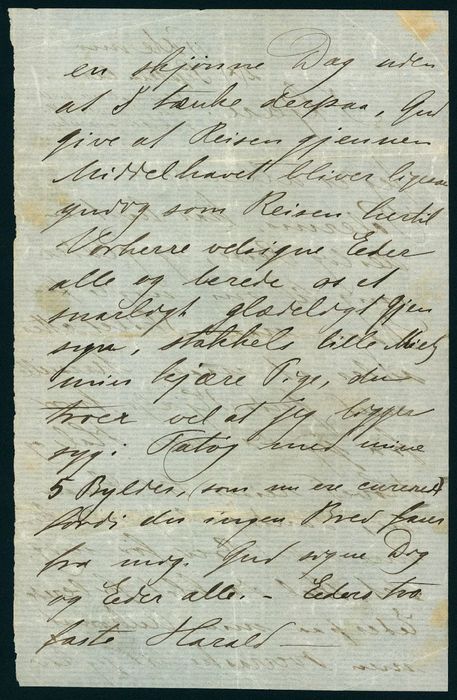 en skjønne Dag uden
at I tænke derpaa, Gud
give at Reisen gjennem
Middelhavet bliver ligesaa
yndig som Reisen hertil
Vorherre velsigne Eder
alle og berede os et
snarligt glædeligt Gjen
syn, stakkels lille
min kjære Pige, du
troer vel at jeg ligger
syg i med mine
5 Bylder, (som nu ere curerede
fordi du ingen Brev faaer
fra mig. Gud signe Dig
og Eder alle. - Eders tro
faste Harald